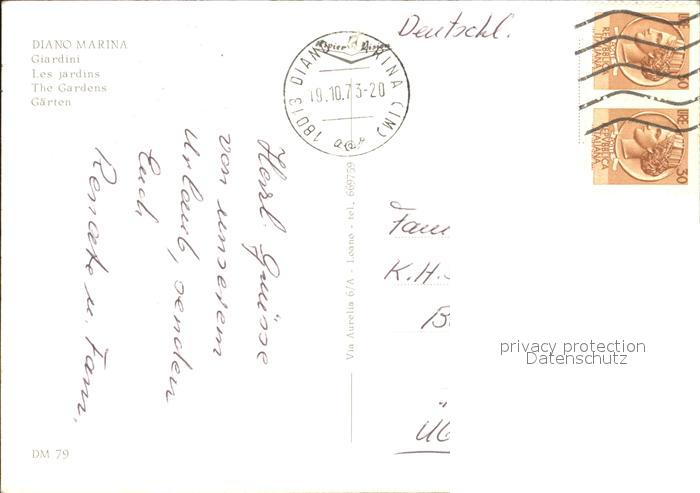 DIANO MARINA
Giardini
Les jardins
The Gardens
Gärten
Herzl. Grüsse
von unserem
Urlaub, senden
Euch
Renate u. Fam.
DM 79
Via Aurelia 6/A - Loano - tel. 669759
18013 DIANO MARINA (IM)
19.10.73-20
Deutschl.
Fam
K.H.
LIRE 30
POSTE
REPUBBLICA
ITALIANA
LIRE 30
POSTE
REPUBBLICA
ITALIANA
privacy protection
Datenschutz